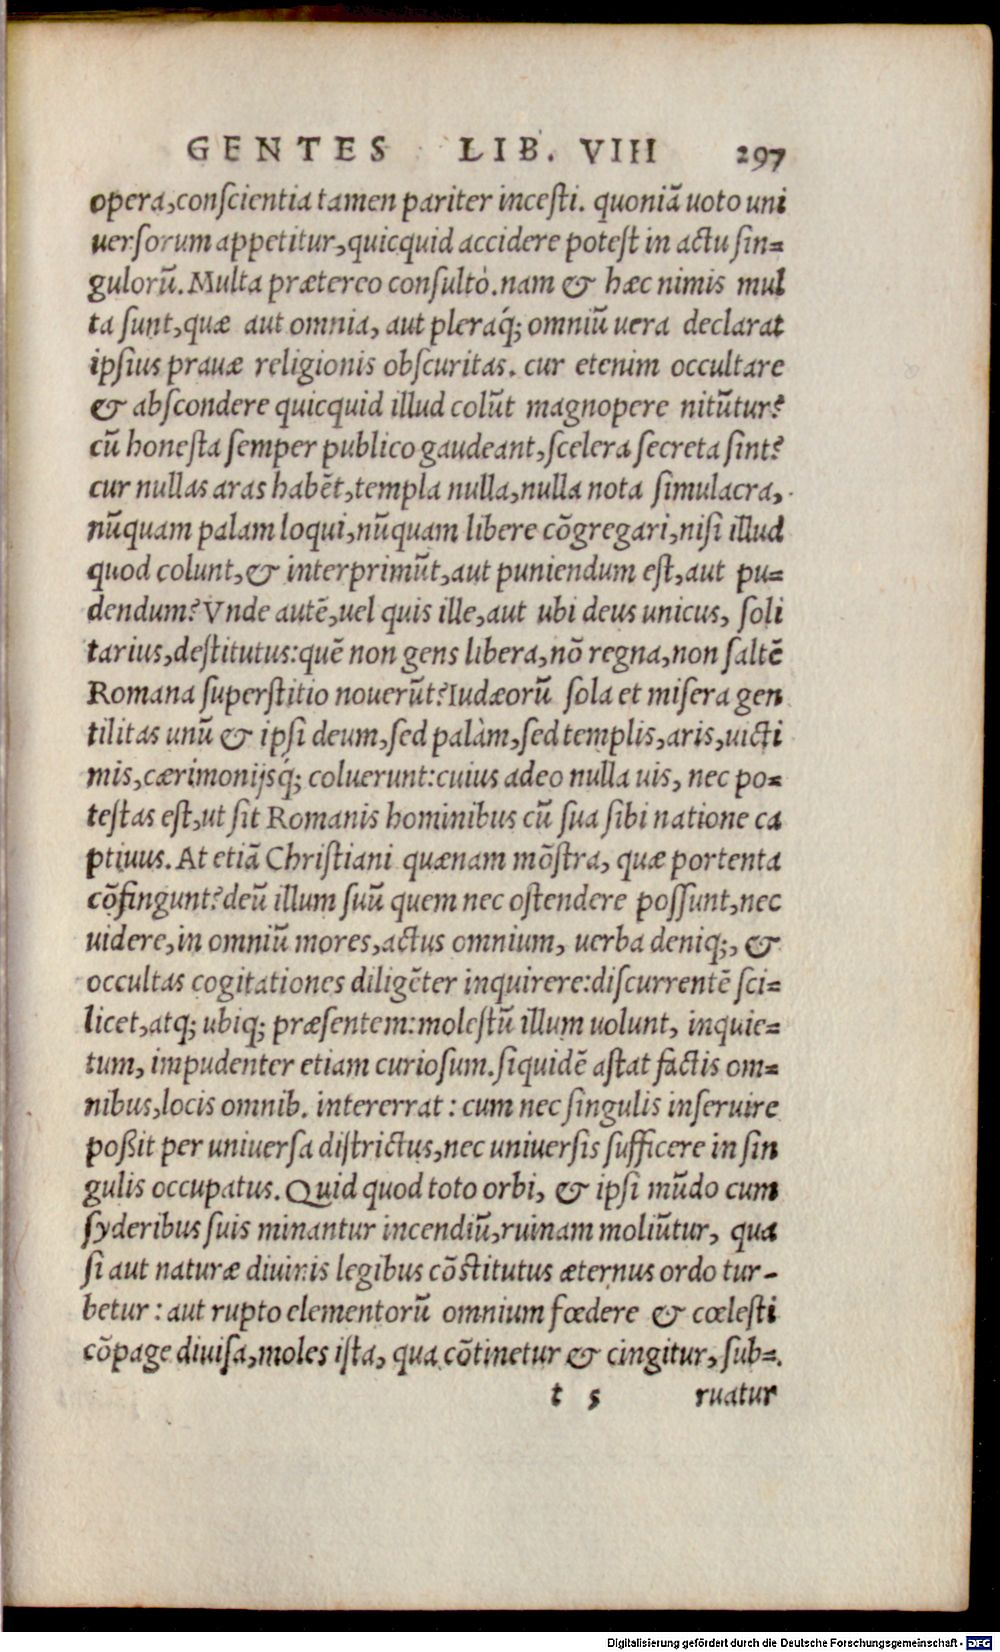 GENTES LIB. VIII 297
opera,conſcientia tamen pariter inceſti. quoniā uoto uni
uerſorum appetitur,quicquid accidere poteſt in actu ſin=
gulorū. Multa prætereo conſultò.nam & hæc nimis mul
ta ſunt,quæ aut omnia, aut pleraq́; omniū uera declarat
ipſius prauæ religionis obſcuritas. cur etenim occultare
& abſcondere quicquid illud colūt magnopere nitūtur?
cū honeſta ſemper publico gaudeant,ſcelera ſecreta ſint?
cur nullas aras habēt,templa nulla,nulla nota ſimulacra,
nūquam palam loqui,nūquam libere cōgregari,niſi illud
quod colunt,& interprimūt,aut puniendum eſt,aut pu=
dendum? Vnde autē,uel quis ille,aut ubi deus unicus, ſoli
tarius,deſtitutus:quē non gens libera,nō regna,non ſaltē
Romana ſuperſtitio nouerūt?Iudæorū ſola et miſera gen
tilitas unū & ipſi deum,ſed palàm,ſed templis,aris,uicti
mis,cærimonijsq́; coluerunt:cuius adeo nulla uis, nec po=
teſtas eſt,ut ſit Romanis hominibus cū ſua ſibi natione ca
ptiuus. At etiā Chriſtiani quænam mōſtra, quæ portenta
cōfingunt?deū illum ſuū quem nec oſtendere poſſunt,nec
uidere,in omniū mores,actus omnium, uerba deniq;, &
occultas cogitationes diligēter inquirere:diſcurrentē ſci=
licet,atq; ubiq; præſentem:moleſtū illum uolunt, inquie=
tum, impudenter etiam curioſum.ſiquidē aſtat factis om=
nibus,locis omnib. intererrat : cum nec ſingulis inſeruire
poßit per uniuerſa diſtrictus,nec uniuerſis ſufficere in ſin
gulis occupatus. Quid quod toto orbi, & ipſi mūdo cum
ſyderibus ſuis minantur incendiū,ruinam moliūtur, qua
ſi aut naturæ diuinis legibus cōſtitutus æternus ordo tur-
betur : aut rupto elementorū omnium fœdere & cœleſti
cōpage diuiſa,moles iſta, qua cōtinetur & cingitur, ſub=
t s ruatur
Digitalisierung gefördert durch die Deutsche Forschungsgemeinschaft - DFG